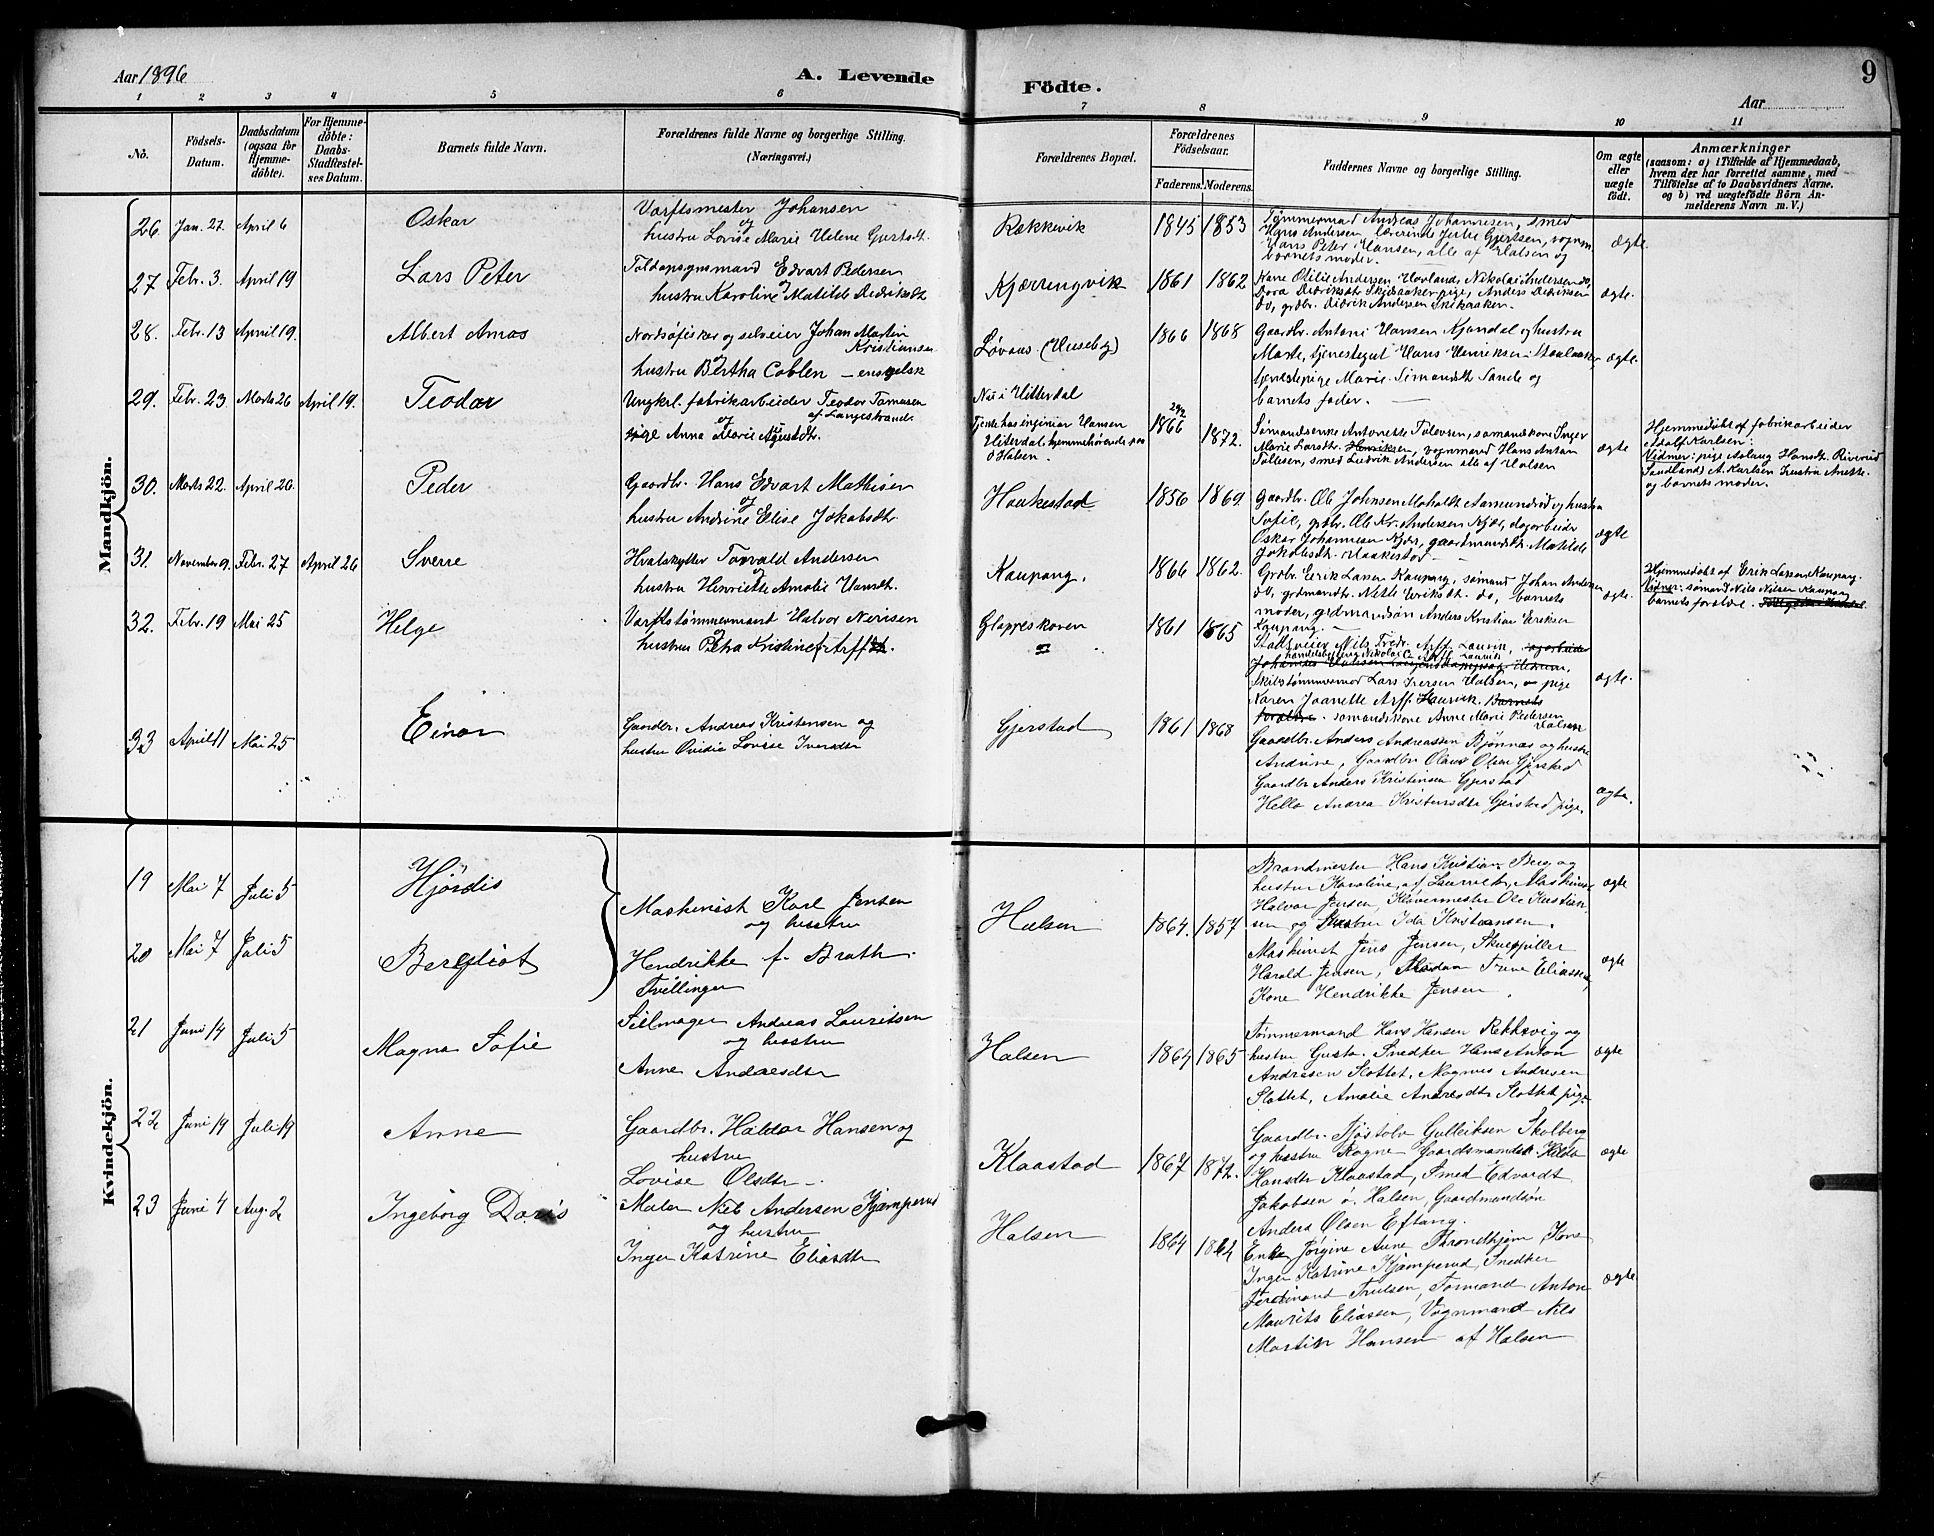 Aar 1896
A. Levende
Födte.
9
Aar
1 2 3 4 5 6 7 8 9 10 11
No.
Födsels-Datum.
Daabsdatum (ogsaa for Hjemme-döbte).
For Hjemme-döbte: Daabs-Stadfæstel-ses Datum.
Barnets fulde Navn.
Forældrenes fulde Navne og borgerlige Stilling.
(Næringsvei.)
Forældrenes Bopæl.
Forældrenes Födselsaar.
Faderens. Moderens.
Faddernes Navne og borgerlige Stilling.
Om ægte eller uægte födt.
Anmærkninger
(saasom: a) i Tilfælde af Hjemmedaab,
hvem der har forrettet samme, med
Tilföielse af to Daabsvidners Navne.
og b) ved uægtefödte Börn An-
melderens Navn m. V.)
Mandkjön.
26. Jan. 27. April 6 Oskar
Varftsmester Johansen
og
hustru Lovise Marie Helene
Rækkevik 1845 1853
Tømmermand Andreas Johannesen, smed
Hans Andersen lærerinde Gjertsen, vognm.
Hans Peter Hansen, alle af Halsen og
barnets moder.
ægte.
27 Febr. 3. April 19 Lars Peter
Toldopsynsmand Edvart Pedersen
og
hustru Karoline Matilde Didriksdt
Kjærringvik 1861 1862
Kone Otilie Andersen Hovland, Nikolai Andersen do,
Dora Didriksdt Skibaaker pige, Anders Didriksen
do, grdbr. Didrik Andersen Skibaaker.
ægte.
28. Febr. 13 April 19. Albert Amos
Nordsøfisker og selveier Johan Martin
Kristiansen
og
hustru Bertha Coblen — engelsk
Løvaas (Huseby) 1866 1868
Gaardbr. Anton Hansen Kjøndal og hustru
Marte, tjenestegut Hans Henriksen
tjenestepige Marie Simonsdt Sande og
barnets fader. —
ægte.
29. Febr. 23 Marts 26 April 19. Teodor
Ungkrl. fabrikarbeider Teodor Tomasen
af Langestrand
og
pige Anna Marie Agustdtr.
Nu i Hitterdal
Tjente hos ingeniør Hansen
Hiterdal hjemmehørende paa
Halsen.
1866 1872.
Sømandsenke Antonette Tolevsen, sømandskone Inger
Marie Larsdt. Henriksen, vognmand Hans Anton
Tollesen, smed Ludvik Andersen alle af Halsen
ægte
Hjemmedøbt af fabrikarbeider
Adolf Karlsen:
Vidner: pige Aslaug Hansdt. Riverud
Sandland, A. Karlsens hustru Anette
og barnets moder.
30. Marts 22. April 26. Peder
Gaardbr. Hans Edvart Mathisen
og
hustru Andrine Elise Jakobsdtr.
Haakestad 1856 1869.
Gaardbr. Ole Johnsen Moholdt Aamundrød og hustru
Sofie, grdbr. Ole Kr. Andersen Kjær, dagarbeider
Oskar Johannesen Kjær, gaardmandsdt. Matilde
Jakobsdt. Haakestad —
ægte
31. November 9. Febr. 27 April 26 Sverre
Hvalskytter Torvald Andersen
og
hustru Henriette Amalie Hansdt.
Kaupang. 1866 1862.
Grdbr. Erik Larsen Kaupang, sømand Johan Andersen
do, grdmandsdt. Nette Eriksdt. do, barnets
moder, grdmandssøn Anders Kristian Eriksen
Kaupang. —
ægte.
Hjemmedøbt af Erik Larsen Kaupang.
Vidner: sømand Nils Nilsen Kaupang
barnets forældre.
32. Febr. 19 Mai 25 Helge
Varftstømmermand Halvor Nerisen
og
hustru Petra Kristine f. Arff
Glappeskoven 1861 1865
Stadsveier Nils Fredr. Arff. Laurvik,
handelsbetjent Nikolai C. Arff Laurvik
Skibstømmermand Lars Iversen Halsen, pige
Karen Jeanette Arff Laurvik. Barnets
forældre. sømandskone Anne Marie Pedersen
Halsen
ægte.
33 April 11 Mai 25 Einar
Gaardbr. Andreas Kristensen og
hustru Ovidia Lovise Iversdtr
Gjerstad 1861 1868
Gaardbr. Anders Andreassen Bjønnæs og hustru
Andrine, Gaardbr Olaus Olsen Gjerstad
Gaardbr Anders Kristensen Gjerstad
Hella Andrea Kristensdtr Gjerstad pige.
ægte.
Kvindekjön.
19 Mai 7 Juli 5 Hjørdis
20 Mai 7 Juli 5 Bergliot
Maskinist Karl Jensen
og hustru
Hendrikke f. Brath.
Tvillinger
Halsen 1864. 1857
Brandmester Hans Kristian Berg og
hustru Karoline, af Laurvik, Maskinist
Halvor Jensen, Klavermester Ole Kristian-
sen og hustru Ida Kristiansen.
ægte
Maskinist Jens Jensen, Skuespiller
Harald Jensen, Madam Trine Eliassen,
Kone Hendrikke Jensen.
ægte
21 Juni 14 Juli 5 Magna Sofie
Seilmager Andreas Lauritsen
og hustru
Anne Andresdtr
Halsen 1864 1865
Tømmermand Hans Hansen Rekkevig og
hustru Gusta. Snedker Hans Anton
Andresen Slottet, Magnus Andresen
Slottet, Amalie Andresdtr Slottet pige.
ægte
22 Juni 19 Juli 19 Anne
Gaardbr. Haldor Hansen og
hustru
Lovise Olsdtr —.
Klaastad 1867 1872.
Gaardbr. Tjøstolv Gulleiksen Skalberg
og hustru Ragne Gaardmandsdt. Helda
Hansdtr Klaastad, Smed Edvardt
Jakobsen ø. Halsen, Gaardmandsøn
Anders Olsen Eftang.
ægte
23 Juni 4 Aug. 2 Ingeborg Doris
Maler Nils Andersen Kjæmperud
og hustru
Inger Katrine Eliasdtr
Halsen 1864 1864
Enke Jørgine Aune Trondhjem Kone
Inger Katrine Kjæmperud, Snedker
Ferdinand Trulsen, Formand Anton
Maurits Eliassen, Vognmand Nils
Martin Hansen af Halsen
ægte